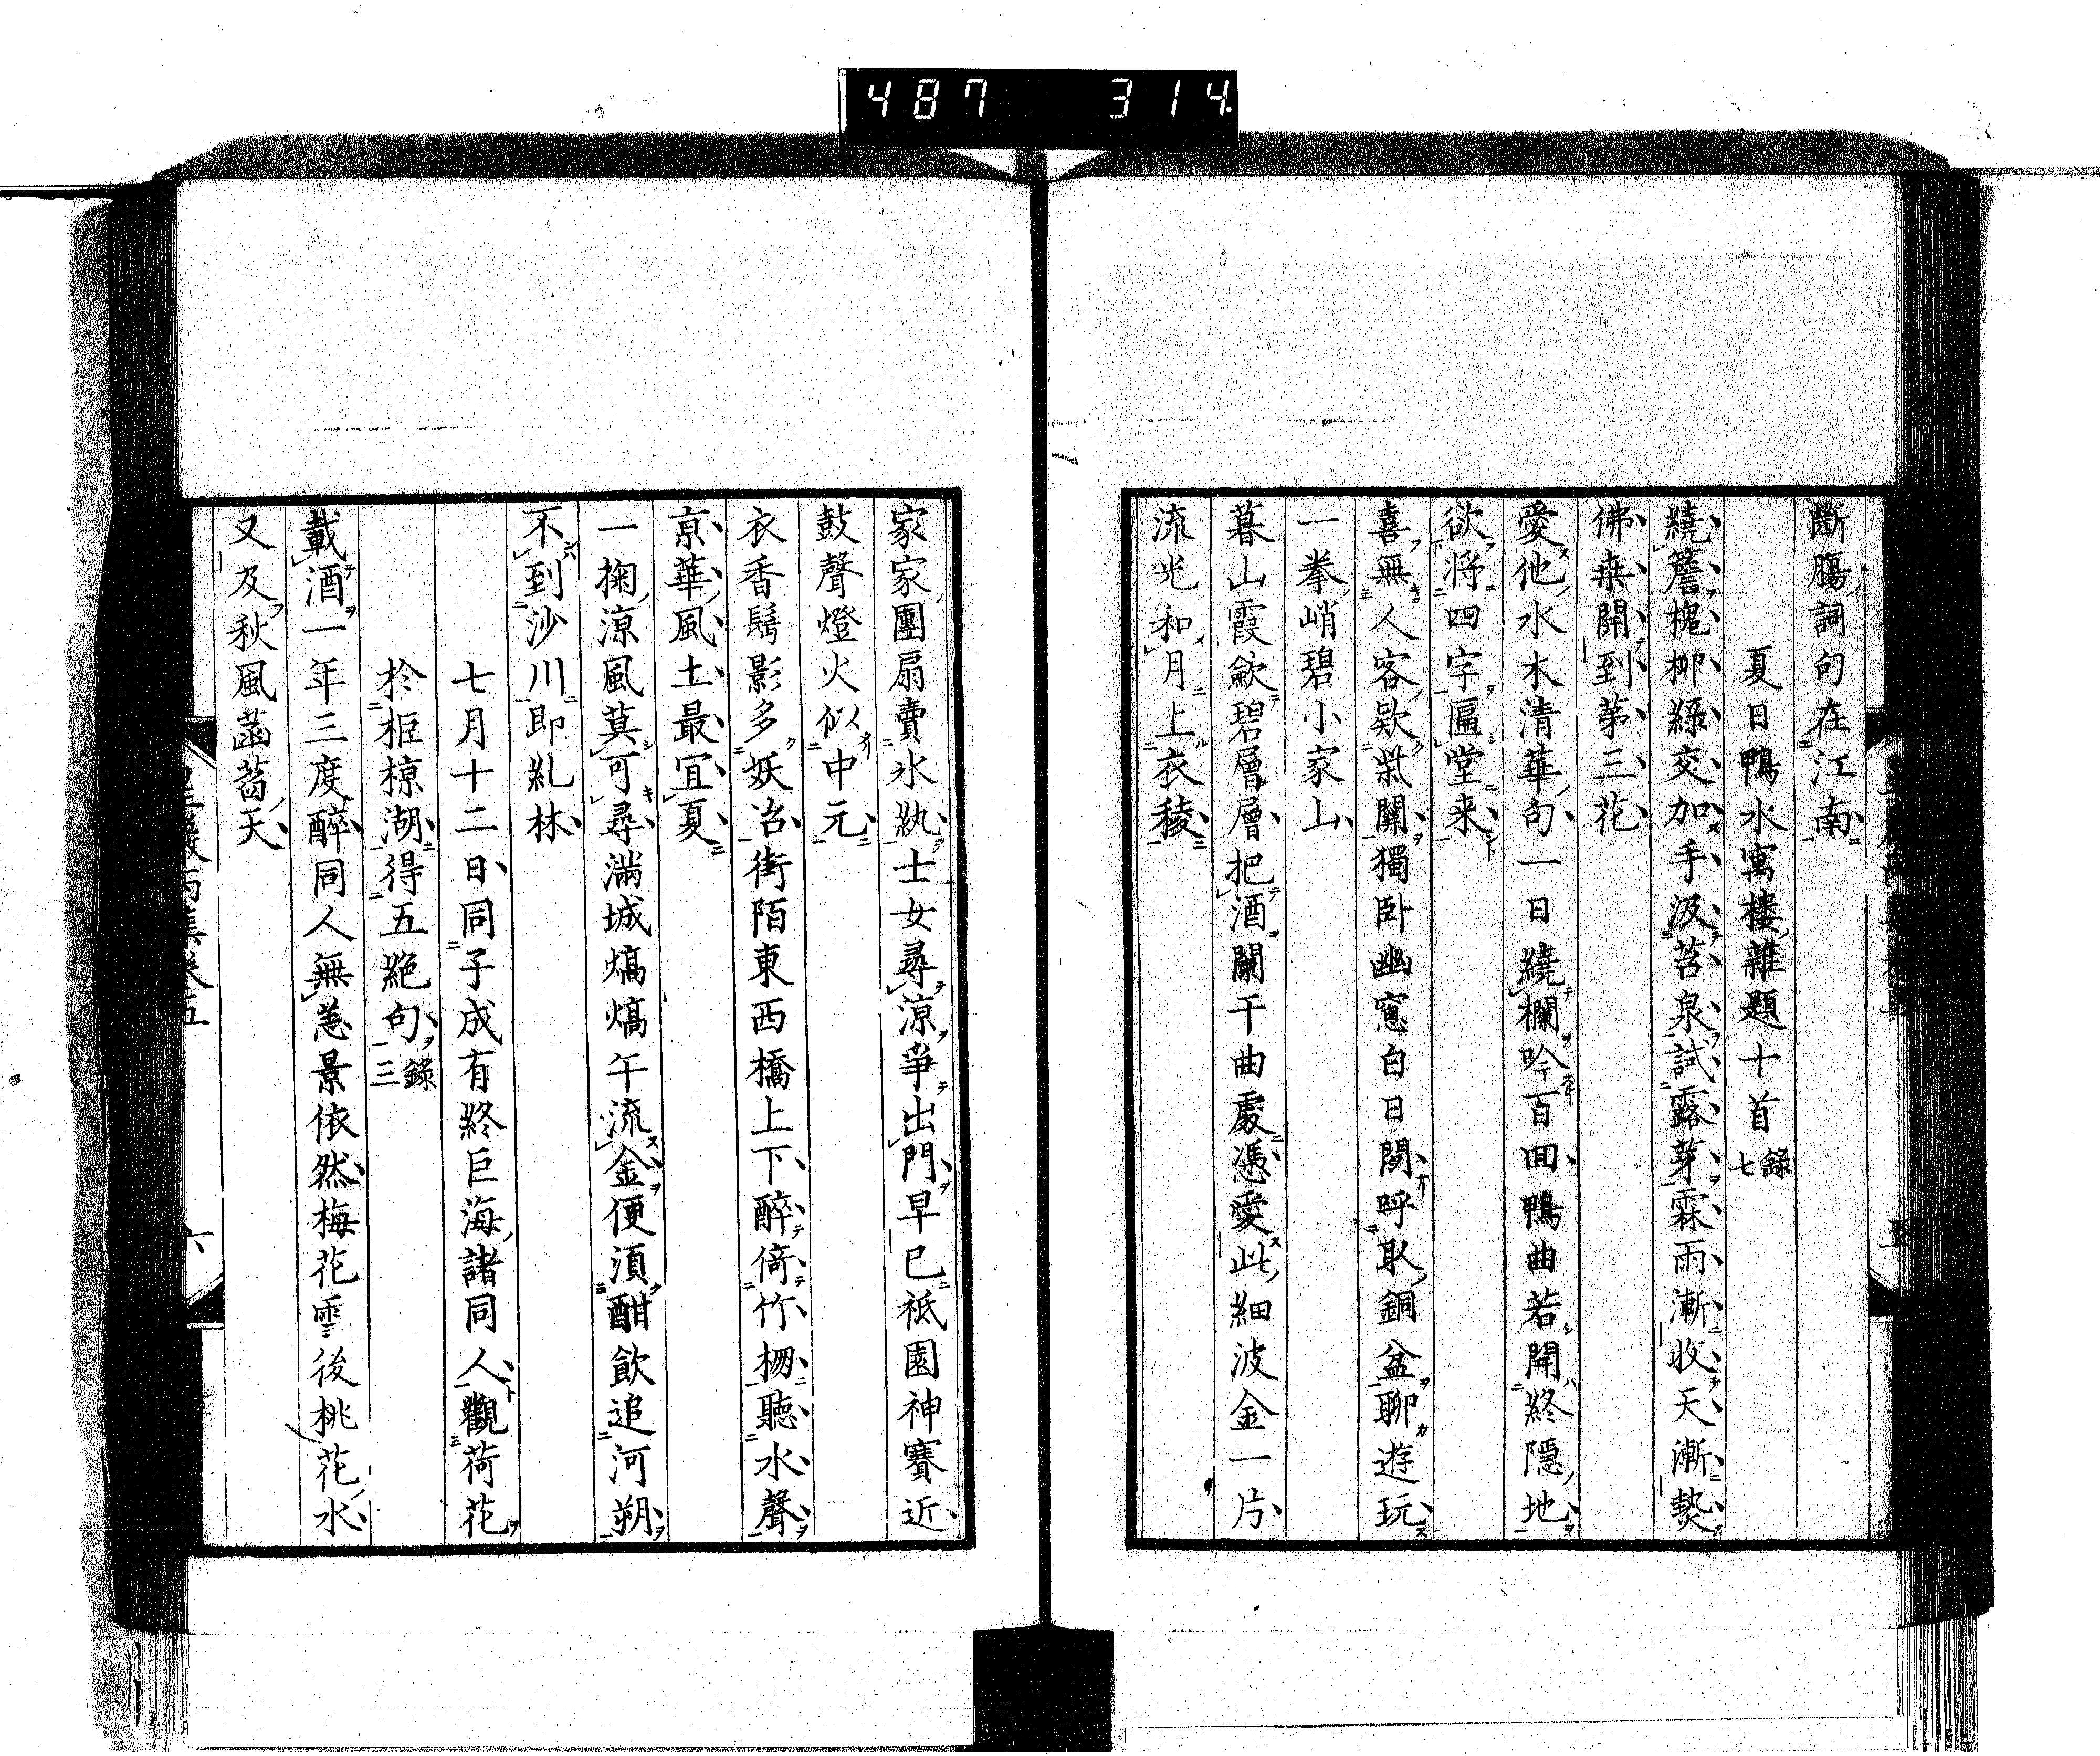 487 314
斷膓詞句在江南
夏日鴨水寓樓雜題十首 錄七
繞簷槐柳綠交加手汲苔泉試露芽霖雨漸收天漸𤍠
佛桒開到第三花
愛他水木清華句一日繞欄吟百回鴨曲若開終隱地
欲將四字匾堂来
喜無人客欵柴關獨臥幽窻白日閑呼取銅盆聊遊玩
一拳峭碧小家山
暮山霞歛碧層層把酒闌干曲處憑愛此細波金一片
流光和月上衣稜
家家團扇賣氷紈士女尋凉爭出門早已祇園神賽近
鼓聲燈火似中元
衣香鬚影多妖冶街陌東西橋上下醉倚竹棚聽水聲
亰華風土最宜夏
一掬凉風莫可尋滿城熇熇午流金便須酣飲追河朔
不到沙川即糺林
七月十二日同子成有終巨海諸同人觀荷花
於柜椋湖得五絶句 錄三
載酒一年三度醉同人無恙景依然梅花雪後桃花水
又及秋風菡萏天
六